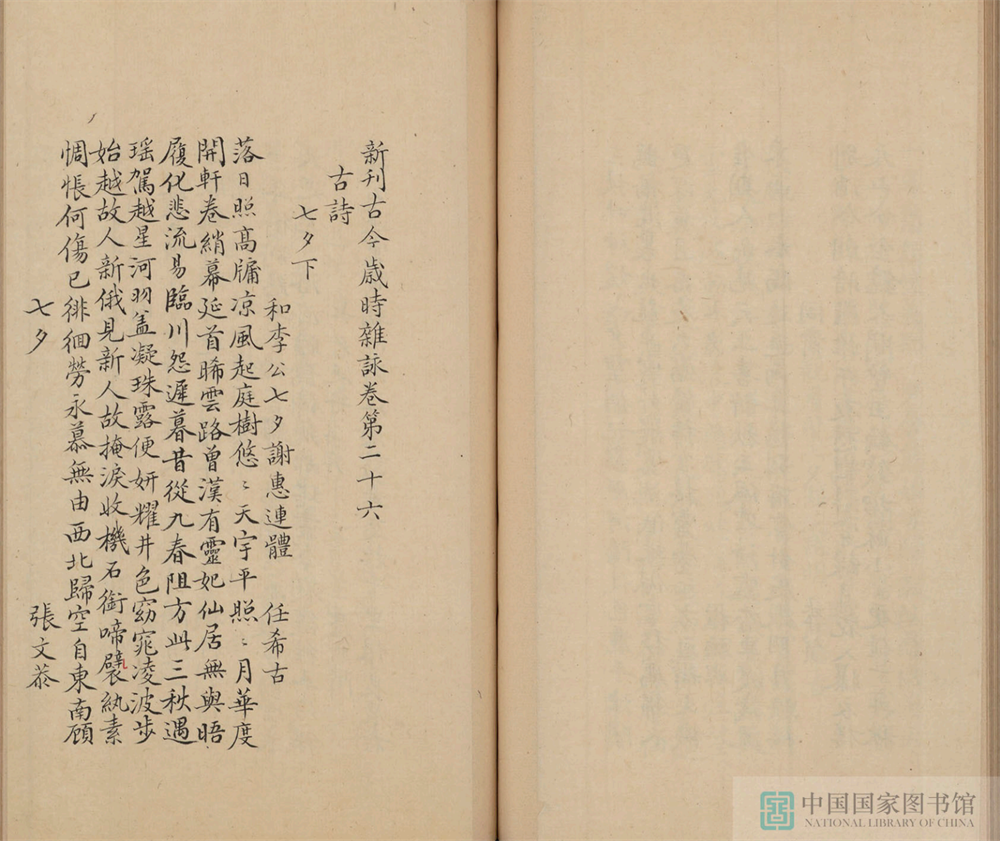 新刊古今歳時雜詠卷第二十六
古詩
七夕下
和李公七夕謝惠連體 任希古
落日照髙牖凉風起庭樹悠〻天宇平照〻月華度
開軒卷綃幕延首晞雲路曾漢有靈妃仙居無與晤
履化悲流易臨川怨遲暮昔從九春阻方此三秋遇
瑶駕越星河羽盖凝珠露便妍耀井色窈窕凌波步
始越故人新俄見新人故掩淚收機石銜啼襞紈素
惆悵何傷已徘徊勞永慕無由西北歸空自東南顾
七夕 張文恭
中国国家图书馆
NATIONAL LIBRARY OF CHINA